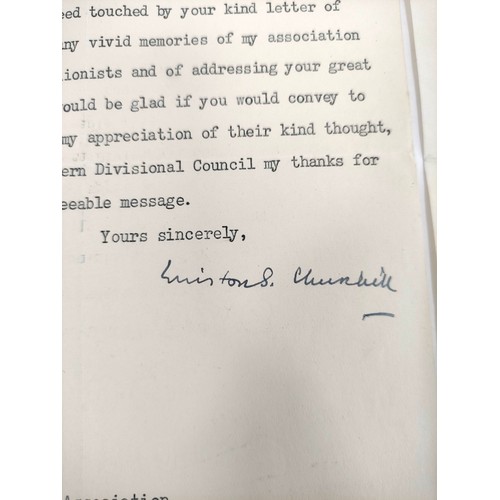 eed touched by your kind letter of
ny vivid memories of my association
ionists and of addressing your great
ould be glad if you would convey to
my appreciation of their kind thought,
ern Divisional Council my thanks for
eeable message.
Yours sincerely,
Winston S. Churchill
Association